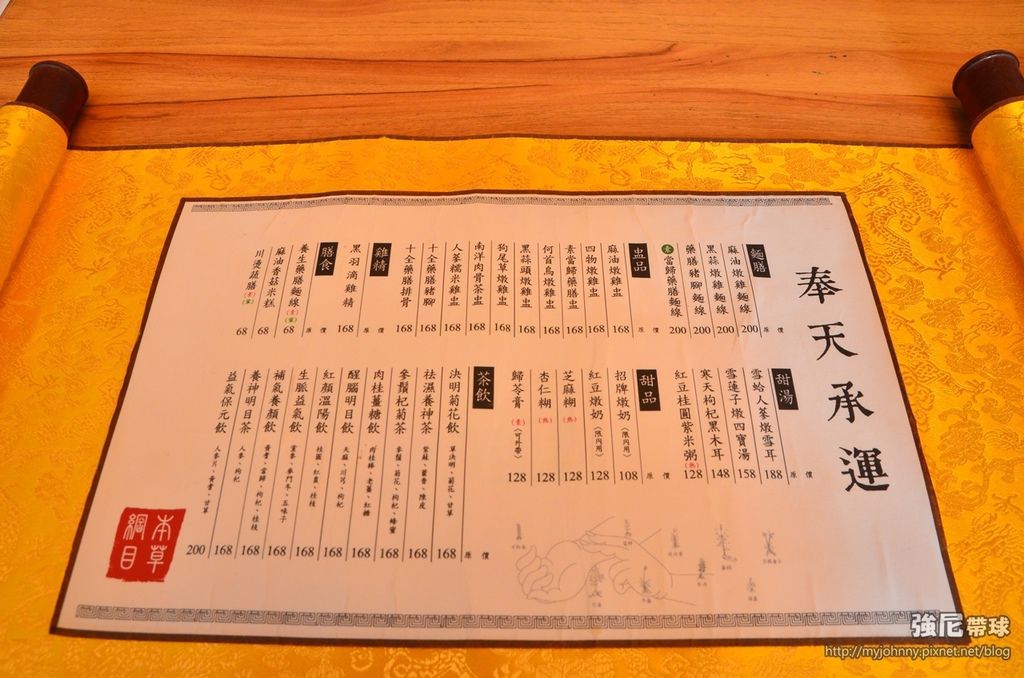 奉天承運
麵膳 原價
麻油燉雞麵線 200
黑蒜燉雞麵線 200
藥膳豬腳麵線 200
素 當歸藥膳麵線 200
盅品 原價
麻油燉雞盅 168
四物燉雞盅 168
素當歸藥膳盅 168
何首烏燉雞盅 168
黑蒜頭燉雞盅 168
狗尾草燉雞盅 168
南洋肉骨茶盅 168
人蔘糯米雞盅 168
十全藥膳豬腳 168
十全藥膳排骨 168
雞精 原價
黑羽滴雞精 168
膳食 原價
養生藥膳麵線(素)(葷) 68
麻油香菇米糕 68
川燙蔬膳(素)(葷) 68
甜湯 原價
雪蛤人蔘燉雪耳 188
雪蓮子燉四寶湯 158
寒天枸杞黑木耳 148
紅豆桂圓紫米粥(熱) 128
甜品 原價
招牌燉奶(限內用) 108
紅豆燉奶(限內用) 128
芝麻糊(熱) 128
杏仁糊(熱) 128
歸苓膏(素)(可外帶) 128
茶飲 原價
決明菊花飲 草決明、菊花、甘草 168
祛濕養神茶 紫蘇、藿香、陳皮 168
參鬚杞菊茶 參鬚、菊花、枸杞、蜂蜜 168
肉桂薑糖飲 肉桂棒、老薑、紅糖 168
醒腦明目飲 天麻、川芎、枸杞 168
紅顏溫陽飲 桂圓、紅棗、桂枝 168
生脈益氣飲 黨參、麥門冬、五味子 168
補氣養顏飲 黃耆、當歸、枸杞、桂枝 168
養神明目茶 人參、枸杞 168
益氣保元飲 人參片、黃耆、甘草 200
本草綱目
強尼帶球
http://myjohnny.pixnet.net/blog